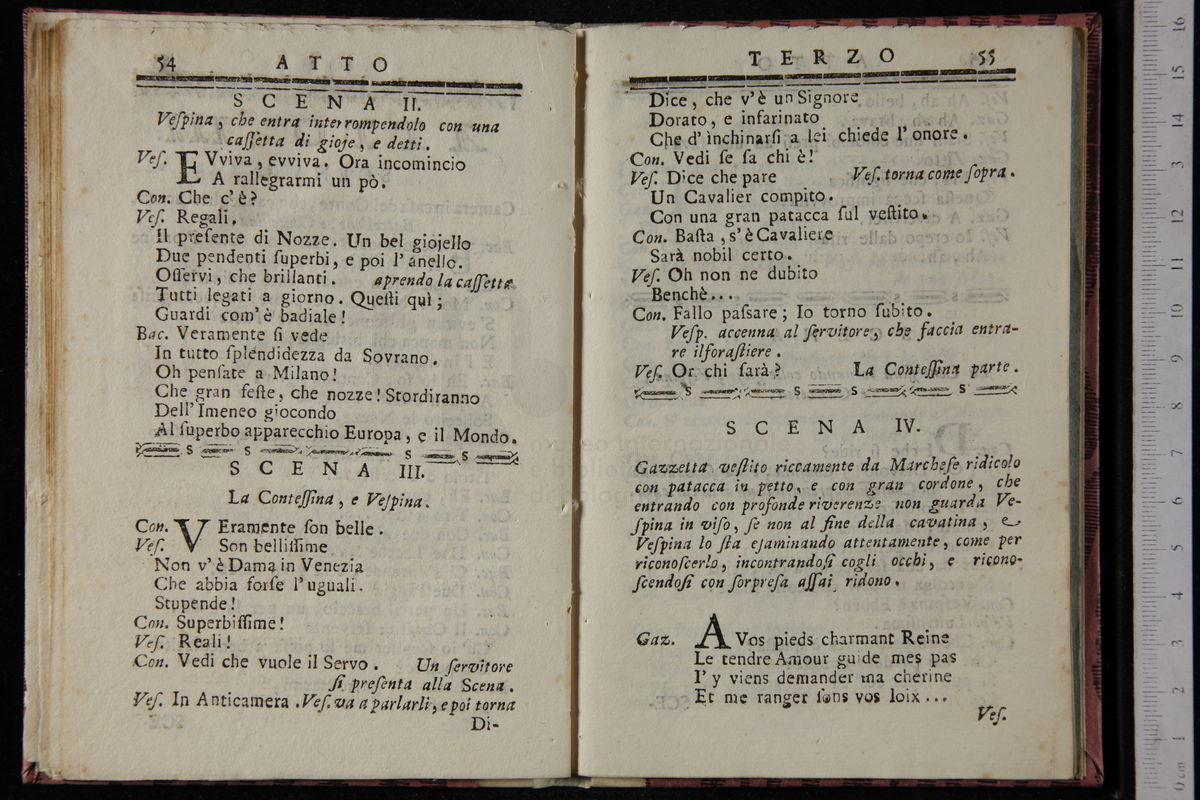 54 ATTO
SCENA II.
Veſpina, che entra interrompendolo con una
caſſetta di gioje, e detti.
Veſ. EVviva, evviva. Ora incomincio
A rallegrarmi un pò.
Con. Che c'è?
Veſ. Regali.
Il preſente di Nozze. Un bel giojello
Due pendenti ſuperbi, e poi l'anello.
Oſſervi, che brillanti. aprendo la caſſetta
Tutti legati a giorno. Queſti quì;
Guardi com'è badiale!
Bac. Veramente ſi vede
In tutto ſplendidezza da Sovrano.
Oh penſate a Milano!
Che gran feſte, che nozze! Stordiranno
Dell'Imeneo giocondo
Al ſuperbo apparecchio Europa, e il Mondo.
SCENA III.
La Conteſſina, e Veſpina.
Con. VEramente ſon belle.
Veſ. Son belliſſime
Non v'è Dama in Venezia
Che abbia forſe l'uguali.
Stupende!
Con. Superbiſſime!
Veſ. Reali!
Con. Vedi che vuole il Servo. Un ſervitore
ſi preſenta alla Scena.
Veſ. In Anticamera. Veſ. va a parlarli, e poi torna
Di-
TERZO 55
Dice, che v'è un Signore
Dorato, e infarinato
Che d'inchinarſi a lei chiede l'onore.
Con. Vedi ſe ſa chi è!
Veſ. Dice che pare Veſ. torna come ſopra.
Un Cavalier compito.
Con una gran patacca ſul veſtito.
Con. Baſta, s'è Cavaliere
Sarà nobil certo.
Veſ. Oh non ne dubito
Benchè...
Con. Fallo paſsare; Io torno ſubito.
Veſp. accenna al ſervitore, che faccia entra-
re ilforaſtiere.
Veſ. Or chi ſarà? La Conteſſina parte.
SCENA IV.
Gazzetta veſtito riccamente da Marcheſe ridicolo
con patacca in petto, e con gran cordone, che
entrando con profonde riverenze non guarda Ve-
ſpina in viſo, ſe non al fine della cavatina, &
Veſpina lo ſta eſaminando attentamente, come per
riconoſcerlo, incontrandoſi cogli occhi, e ricono-
ſcendoſi con ſorpreſa aſſai ridono.
Gaz. A Vos pieds charmant Reine
Le tendre Amour guide mes pas
I'y viens demander ma cherine
Et me ranger ſons vos loix...
Veſ.